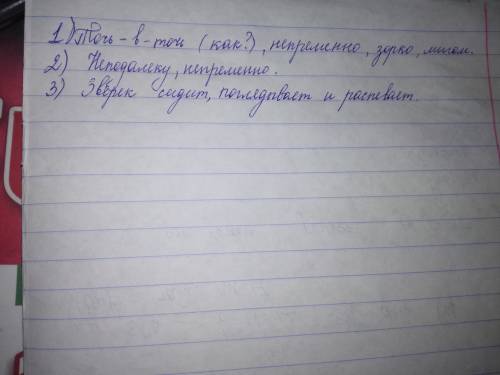 1) Точь-в-точь (как?), непременно, зорко, мигом.
2) Неподалеку, непременно.
3) Зверек сидит, поглядывает и распевает.